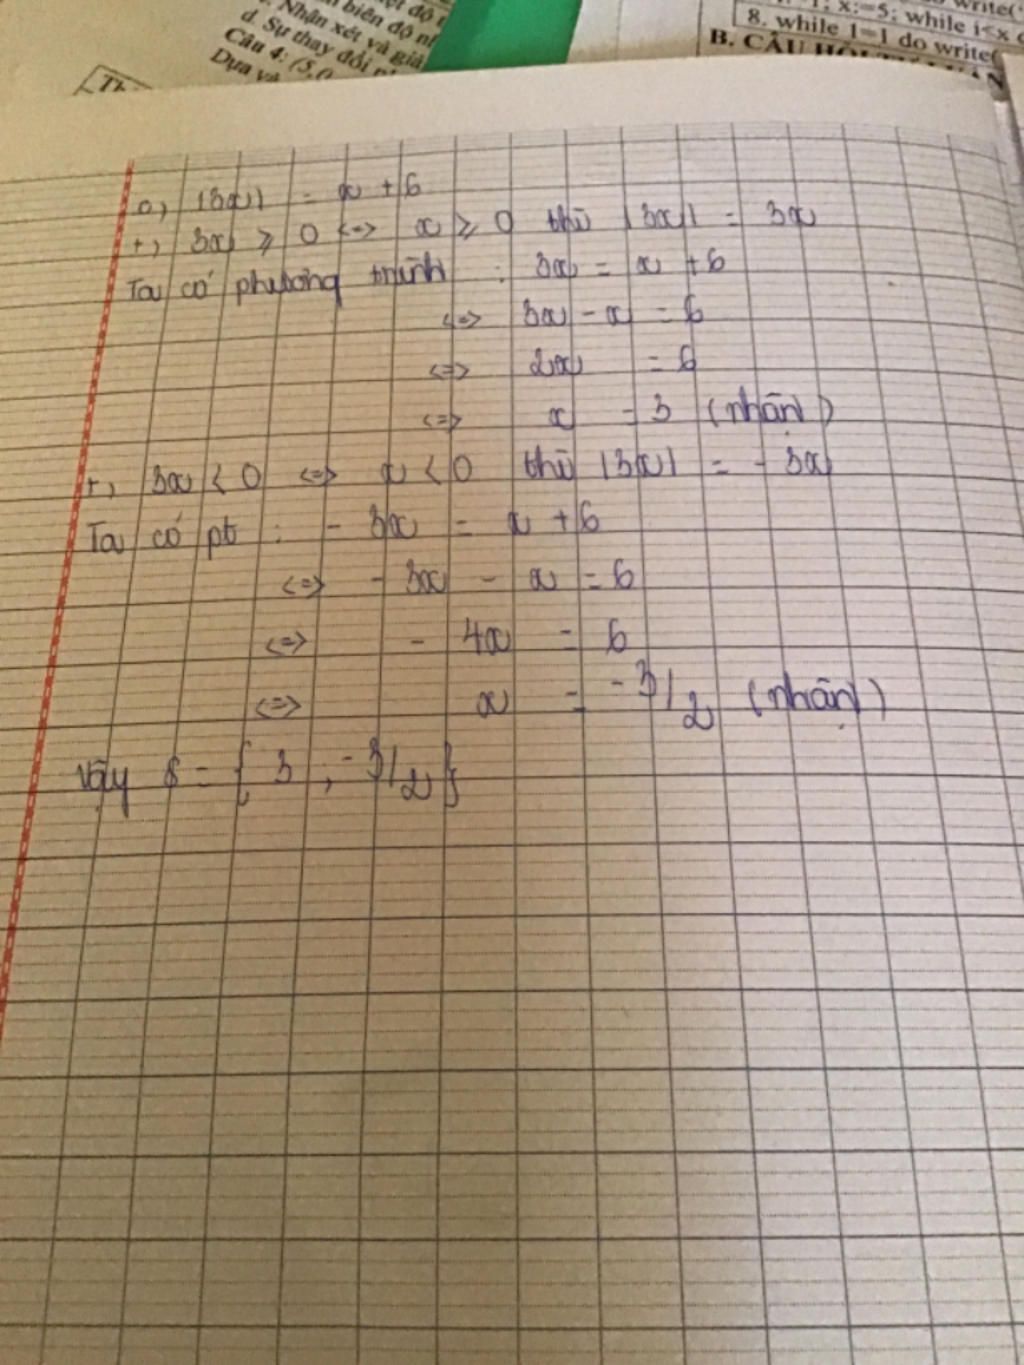 độ n
biên độ nl
Nhận xét và giả
d. Sự thay đổi
Câu 4: (5,0
Dựa và
Th
write(
x:=5; while i<x
8. while 1=1 do write(
B. CÂU HỎI
a, |3x| = x + 6
+, 3x ≥ 0 <=> x ≥ 0 thì |3x| = 3x
Ta có phương trình : 3x = x + 6
<=> 3x - x = 6
<=> 2x = 6
<=> x = 3 (nhận)
+, 3x < 0 <=> x < 0 thì |3x| = - 3x
Ta có pt : - 3x = x + 6
<=> - 3x - x = 6
<=> - 4x = 6
<=> x = -3/2 (nhận)
Vậy S = { 3 ; -3/2 }